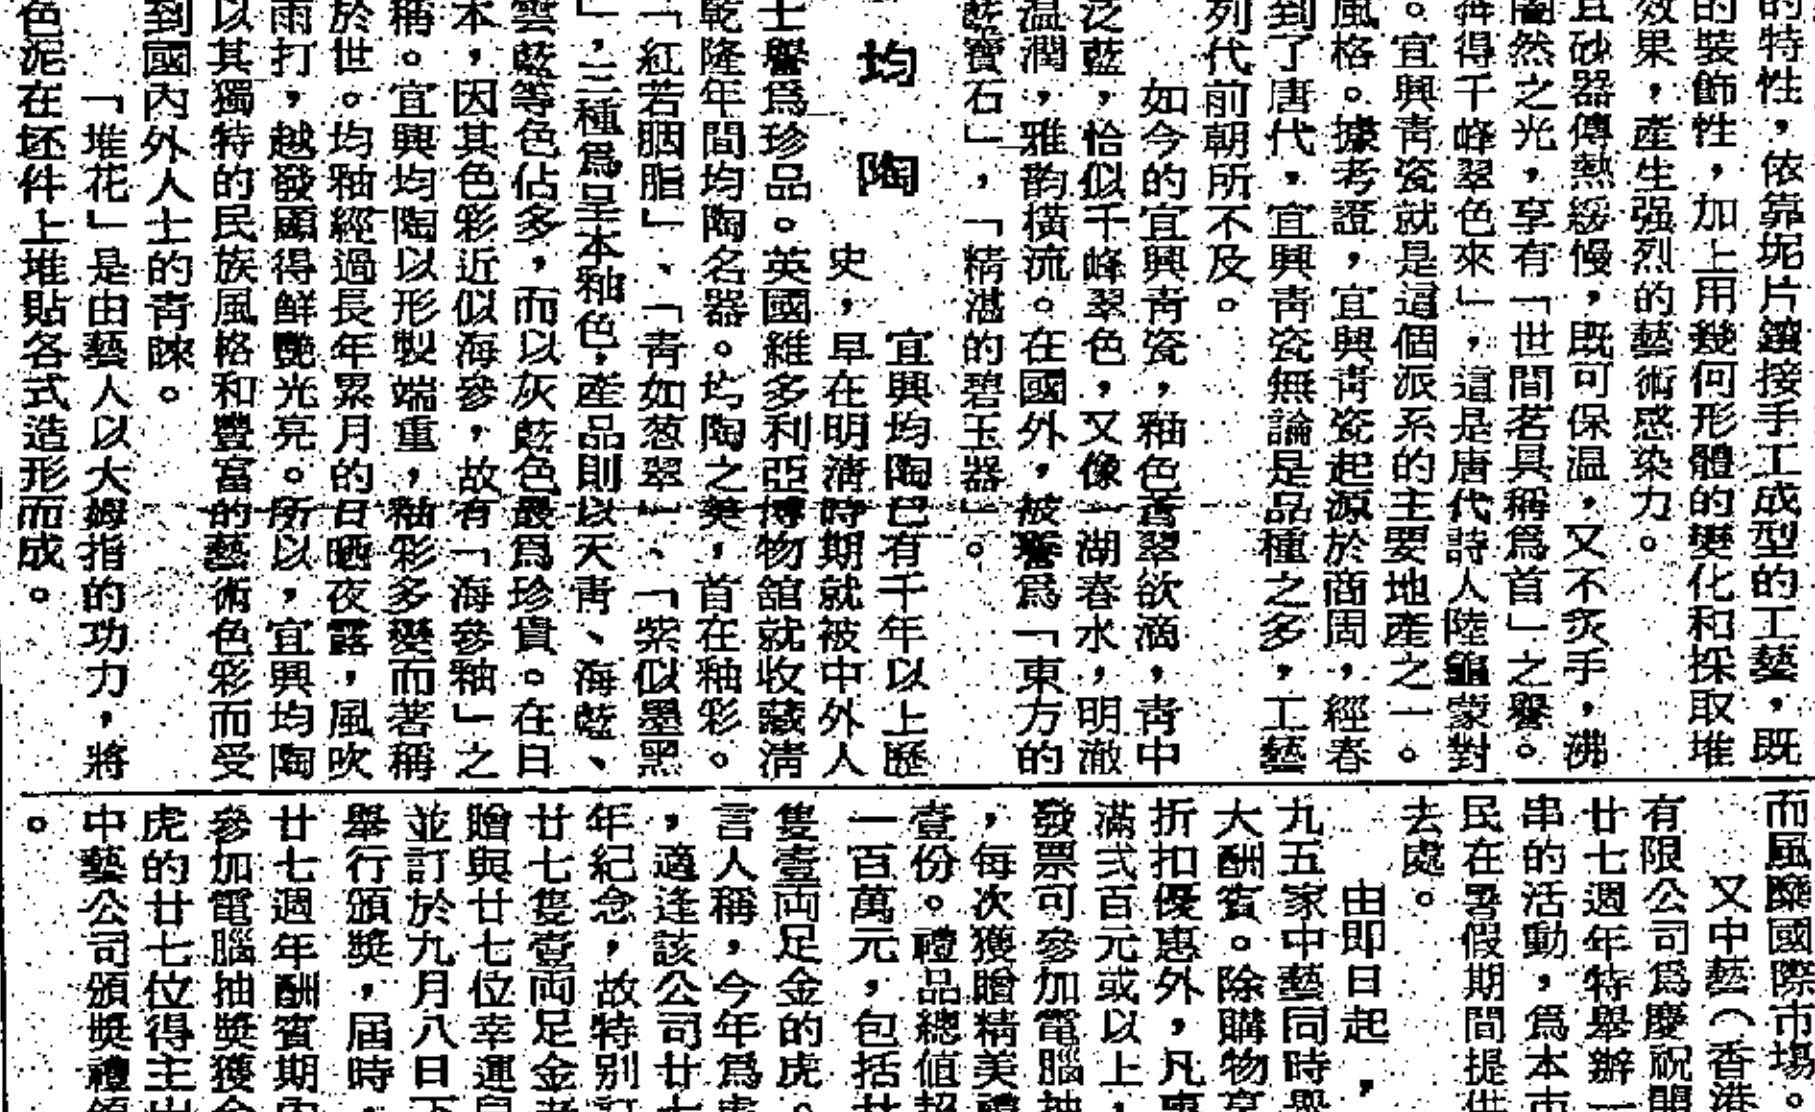 的特性，依靠坭片鑲接手工成型的工藝，既
的裝飾性，加上用幾何形體的變化和採取堆
效果，產生强烈的藝術感染力。
且砂器傳熱緩慢，既可保温，又不炙手，沸
闇然之光，享有「世間茗具稱爲首」之譽。
得千峰翠色來」，這是唐代詩人陸龜蒙對
。宜興靑瓷就是這個派系的主要地產之一。
風格。據考證，宜興靑瓷起源於商周，經春
到了唐代，宜興靑瓷無論是品種之多，工藝
列代前朝所不及。
如今的宜興靑瓷，釉色蒼翠欲滴，靑中
泛藍，恰似千峰翠色，又像一湖春水，明澈
温潤，雅韵橫流。在國外，被譽爲「東方的
藍寶石」，「精湛的碧玉器」。
均陶
宜興均陶已有千年以上歷
史，早在明淸時期就被中外人
士譽爲珍品。英國維多利亞博物舘就收藏淸
乾隆年間均陶名器。均陶之美，首在釉彩。
「紅若胭脂」、「靑如葱翠」、「紫似墨黑
」，三種爲呈本釉色，產品則以天靑、海藍、
雲藍等色佔多，而以灰藍色最爲珍貴。在日
本，因其色彩近似海參，故有「海參釉」之
稱。宜興均陶以形製端重，釉彩多變而著稱
於世。均釉經過長年累月的日晒夜露，風吹
雨打，越發顯得鮮艷光亮。所以，宜興均陶
以其獨特的民族風格和豐富的藝術色彩而受
到國內外人士的靑睞。
「堆花」是由藝人以大姆指的功力，將
色泥在坯件上堆貼各式造形而成。
而風靡國際市場。
又中藝（香港
有限公司爲慶祝開
廿七週年特舉辦一
串的活動，爲本市
民在暑假期間提供
去處。
由即日起，
九五家中藝同時舉
大酬賓。除購物享
折扣優惠外，凡惠
滿弍百元或以上，
發票可參加電腦抽
，每次獲贈精美禮
壹份。禮品總值超
一百萬元，包括廿
隻壹両足金的虎。
言人稱，今年爲虎
，適逢該公司廿七
年紀念，故特别訂
廿七隻壹両足金老
贈與廿七位幸運
並訂於九月八日下
舉行頒獎，屆時，
廿七週年酬賓期內
參加電腦抽獎獲金
虎的廿七位得主
中藝公司頒獎禮
。